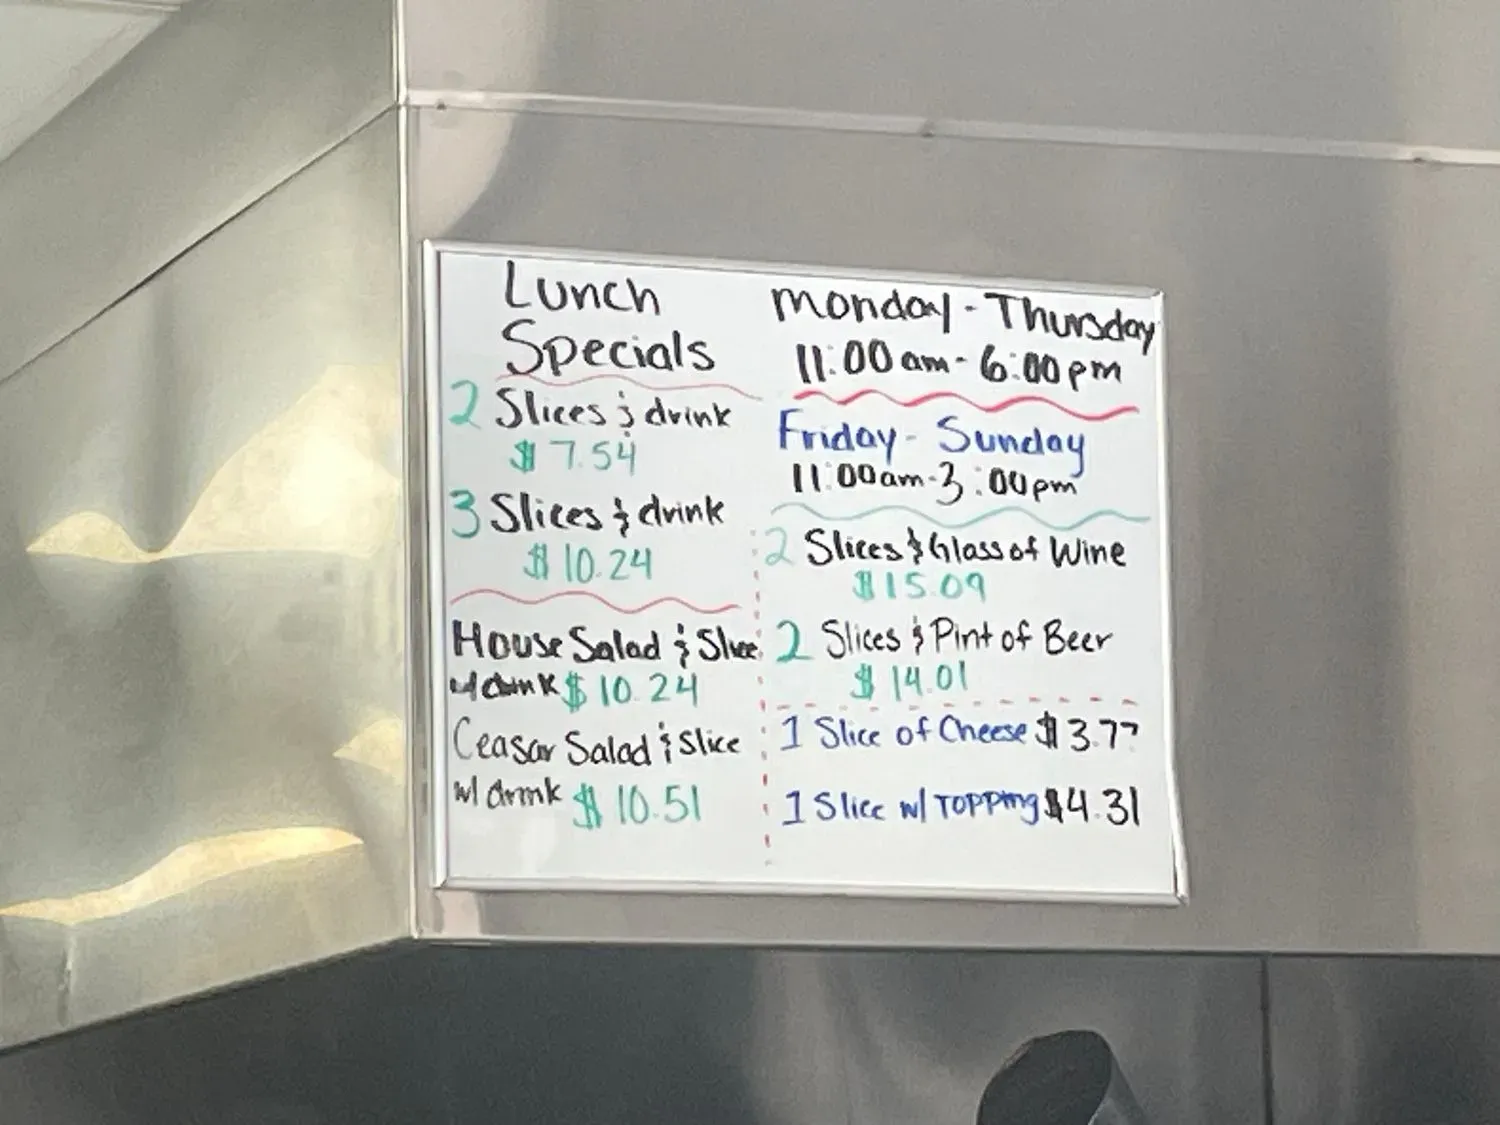 Lunch
Specials
2 Slices & drink
$7.54
3 Slices & drink
$10.24
House Salad & Slice
w/ drink $10.24
Ceasar Salad & Slice
w/ drink $10.51
Monday - Thursday
11:00am - 6:00pm
Friday - Sunday
11:00am - 3:00pm
2 Slices & Glass of Wine
$15.09
2 Slices & Pint of Beer
$14.01
1 Slice of Cheese $3.77
1 Slice w/ Topping $4.31